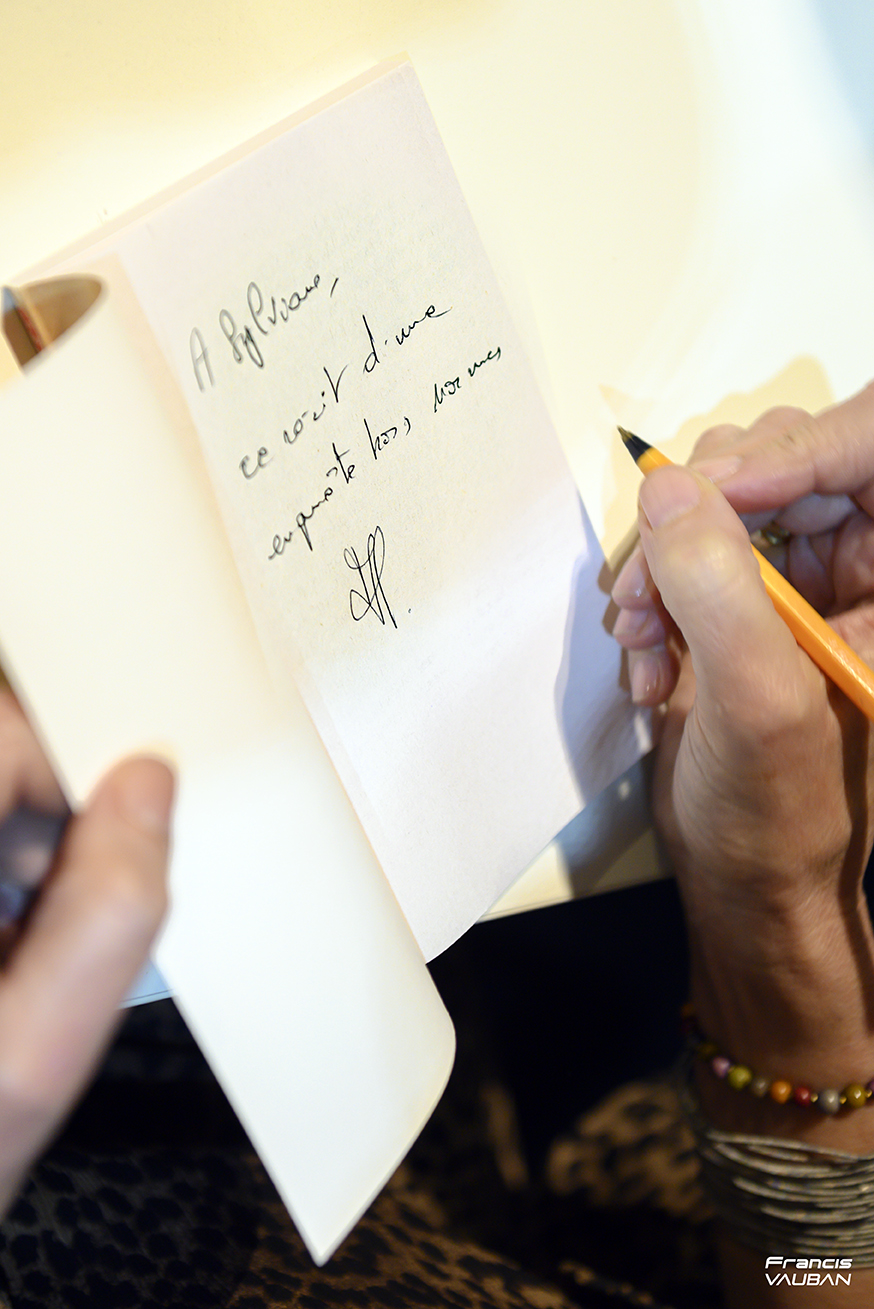 A Sylviane,
ce récit d'une
enquête hors normes
Francis
VAUBAN